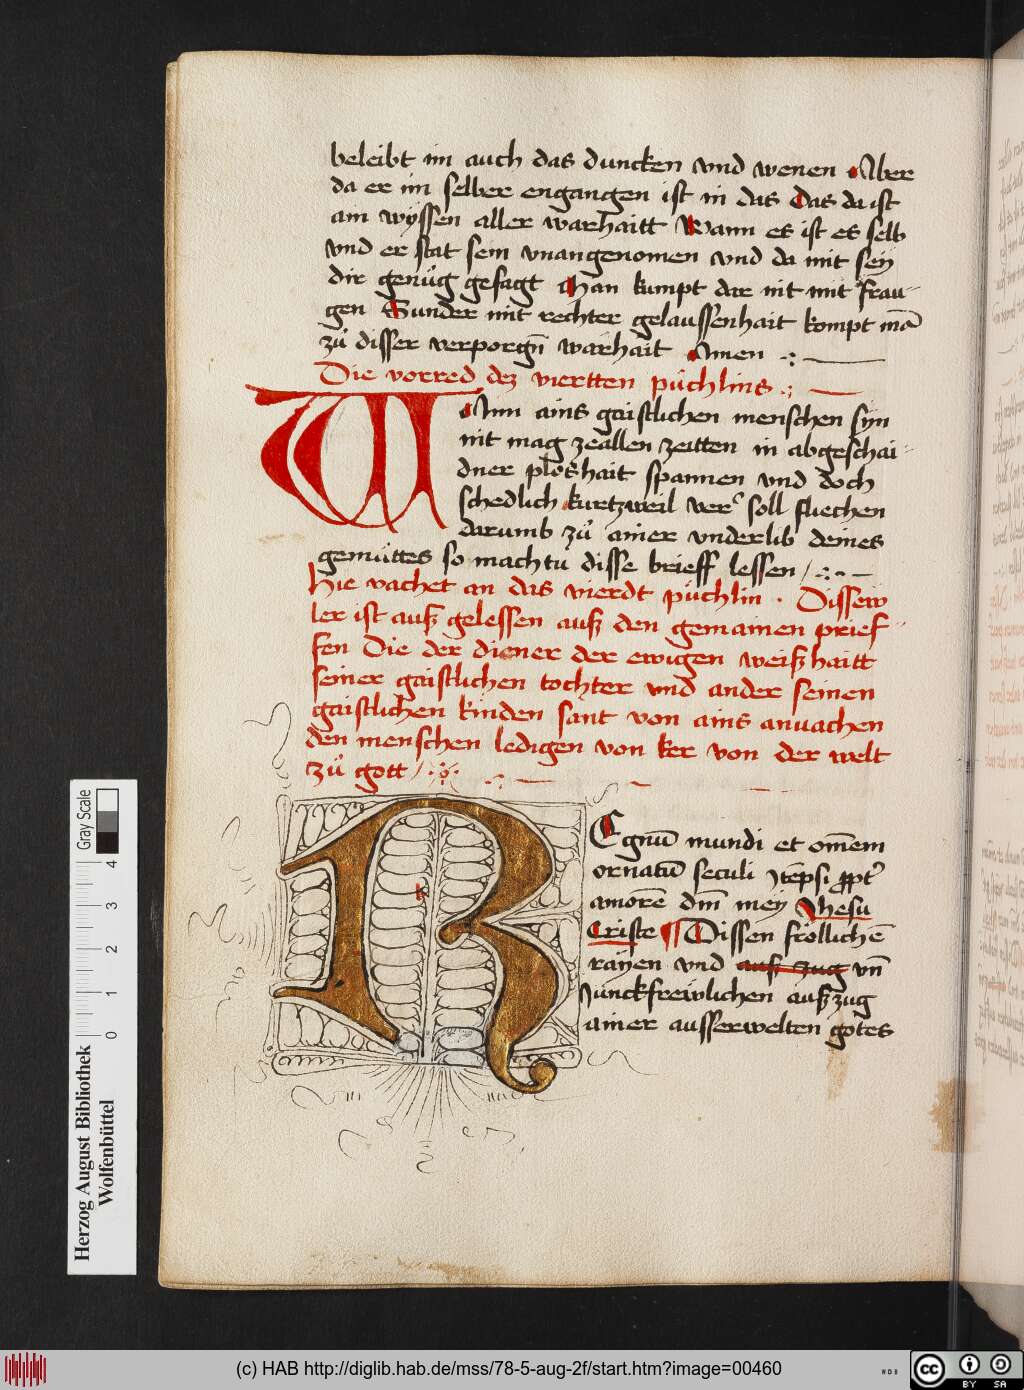 beleibt im auch das duncken vnd wenen Aber
da er im selber engangen ist in das Das da ist
am wyssen aller warhaitt Wann es ist es selb
vnd er stat sein vnangenomen vnd da mit sey
dir genůg gesagt Man kumpt dar nit mit frau-
gen Sunder mit rechter gelaussenhait kompt mā
zů disser verporgn̄ warhait Amen
Die vorred dez viertten püchlins
WAnn ains gaistlichen menschen syn
nit mag zeallen zeitten in abgeschai-
dner ploshait spannen vnd doch
schedlich kurtzweil ver soll fliechen
darumb zů ainer vnderlib deines
gemüttes so machtu disse brieff lessen
Hie vachet an das vierdt püchlin . Dissew
ler ist ausz gelessen ausz den gemainen prief-
fen Die der diener der ewigen weiszhaitt
seiner gaistlichen tochter vnd ander seinen
gaistlichen kinden sant von ains anuachen
den menschen ledigen von ker von der welt
zů gott
REgnū mundi et om̄em
ornatū seculi
amorē dm̄ mey Jhesu
Criste Dissen fröllichē
rayen vnd ausz zug vn̄
Junckfrewlichen auszzug
ainer ausserwelten gotes
Herzog August Bibliothek
Wolfenbüttel
0 1 2 3 4
Gray Scale
(c) HAB http://diglib.hab.de/mss/78-5-aug-2f/start.htm?image=00460
WDB
cc BY SA